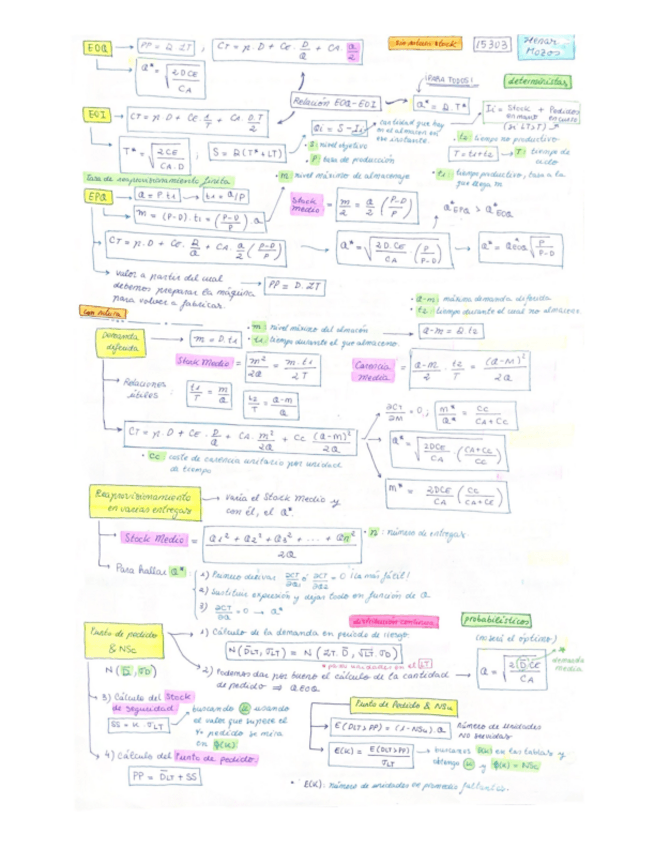 EOQ → PP = D. LT ; CT = p. D + Ce. D/Q + CA. Q/2
sin rotura stock
15303
Henar Mozos
Q* = √(2DCE/CA)
¡PARA TODOS!
deterministas
Relación EOQ-EOI
Q* = D. T*
Ii = Stock en mano + Pedidos en curso
EOI → CT = p. D + Ce. 1/T + CA. D.T/2
Qi = S - Ii
cantidad que hay en el almacén en ese instante.
T* = √(2CE/CA.D) ; S = D(T* + LT)
• S: nivel objetivo
• P: tasa de producción
• t2: tiempo no productivo
T = t1 + t2 → T: tiempo de ciclo
tasa de reaprovisionamiento finita
• m: nivel máximo de almacenaje
• t1: tiempo productivo, tasa a la que llega m
EPQ → Q = P.t1 → t1 = Q/P
m = (P-D). t1 = (P-D/P). Q
Stock Medio = m/2 = Q/2 (P-D/P)
Q*EPQ > Q*EOQ
CT = p. D + Ce. D/Q + CA. Q/2 (P-D/P) → Q* = √(2D.CE/CA (P/P-D)) → Q* = Q*EOQ √(P/P-D)
valor a partir del cual debemos preparar la máquina para volver a fabricar. → PP = D. LT
• Q-m: máxima demanda diferida
• t2: tiempo durante el cual no almaceno.
con rotura
Demanda diferida → m = D. t1
• m: nivel máximo del almacén
• t1: tiempo durante el que almaceno.
Q-m = D. t2
Stock Medio = m²/2Q = m.t1/2T
Carencia Media = Q-m/2 . t2/T = (Q-M)²/2Q
Relaciones útiles: t1/T = m/Q
t2/T = Q-m/Q
CT = p. D + Ce. D/Q + CA. m²/2Q + Cc (Q-m)²/2Q
∂CT/∂M = 0 ; m*/Q* = Cc/CA+Cc
Q* = √(2DCE/CA . (CA+Cc/Cc))
• Cc: coste de carencia unitario por unidad de tiempo
m* = 2DCE/CA (Cc/CA+CE)
Reaprovisionamiento en varias entregas → varía el Stock Medio y con él, el Q*.
Stock Medio = Q1² + Q2² + Q3² + ... + Qn²/2Q
• n: número de entregas
Para hallar Q*: 1) Primero derivar ∂CT/∂Q1 = ∂CT/∂Q2 = 0 ¡la más fácil!
2) Sustituir expresión y dejar todo en función de Q
3) ∂CT/∂Q = 0 → Q*
distribución continua
probabilísticos
Punto de pedido & NSc
1) Cálculo de la demanda en período de riesgo.
(no será el óptimo)
N(D̄LT, σLT) = N(LT. D̄, √LT. σD)
Q = √(2D̄CE/CA)
demanda media
N(D̄, σD)
2) Podemos dar por bueno el cálculo de la cantidad de pedido ⇒ QEOQ.
3) Cálculo del Stock de Seguridad.
SS = K. σLT
buscando K usando el valor que supere el
en φ(K).
Punto de Pedido & NSu
E(DLT>PP) = (1-NSu). Q
Número de unidades NO servidas
E(K) = E(DLT>PP)/σLT
buscamos E(K) en las tablas y obtengo K y φ(K) = NSc
4) Cálculo del Punto de pedido.
PP = D̄LT + SS
• E(K): número de unidades en promedio faltantes.